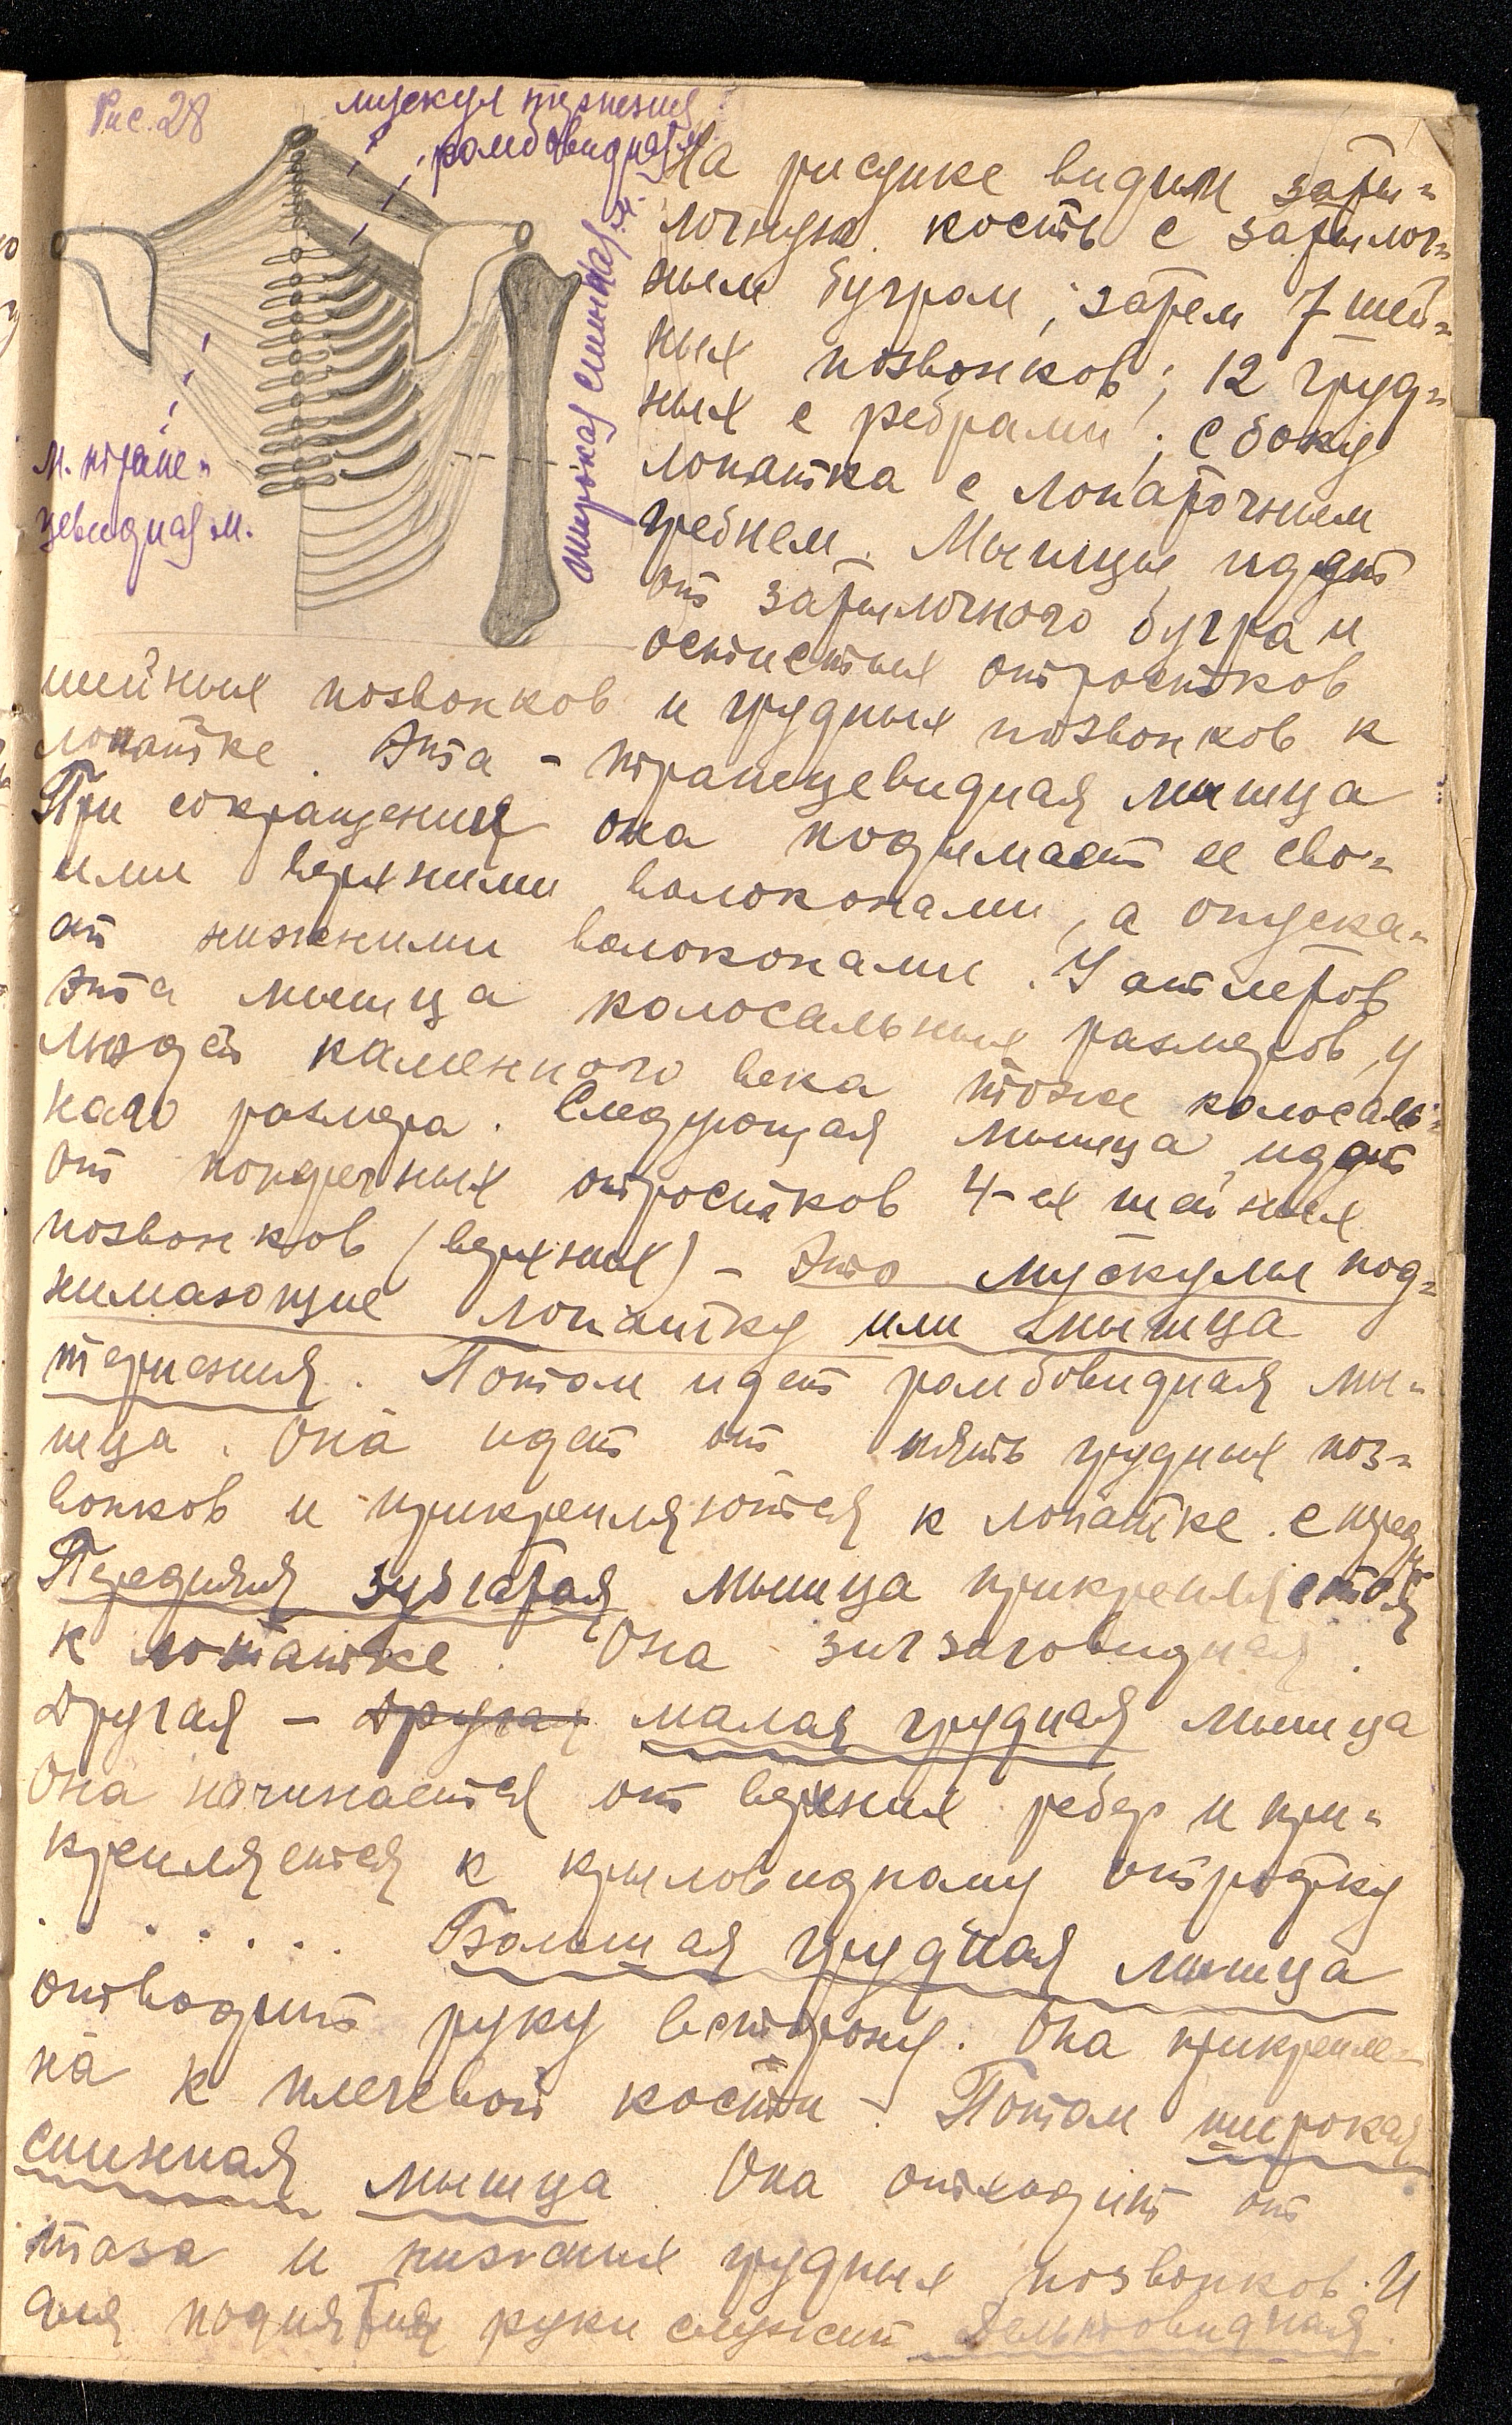 Рис. 28
мускул терпения
ромбовидная м.
широкая спинная м.
м. трапе=
цевидная м.
На рисунке видим заты=
лочную кость с затылоч=
ным бугром, затем 7 шей=
ных позвонков; 12 груд=
ных с ребрами; с боку
лопатка с лопаточным
гребнем. Мышцы идут
от затылочного бугра и
остистых отростков
шейных позвонков и грудных позвонков к
лопатке. Эта - трапецевидная мышца
При сокращении она подымает ее сво=
ими верхними волоконами, а опуска=
ет нижними волоконами. У атлетов
эта мышца колосальных размеров, у
людей каменного века тоже колосаль=
ного размера. Следующая мышца идет
от поперечных отростков 4-ех шейных
позвонков (верхних) - Это мускулы под=
нимающие лопатку или мышца
терпения. Потом идет ромбовидная мы=
шца. Она идет от пять грудных поз=
вонков и прикрепляются к лопатке. с перед
Передняя зубчатая мышца прикрепляется
к лопатке. Она зигзаговидная.
Другая - Другая малая грудная мышца
Она начинается от верхних ребер и при=
крепляется к крыловидному отростку
. . . . . . Большая грудная мышца
отводит руку в сторону. Она прикрепле=
на к плечевой кости - Потом широкая
спинная мышца. Она отходит от
таза и нижних грудных позвонков. И
для поднятия руки служит дельтовидная.